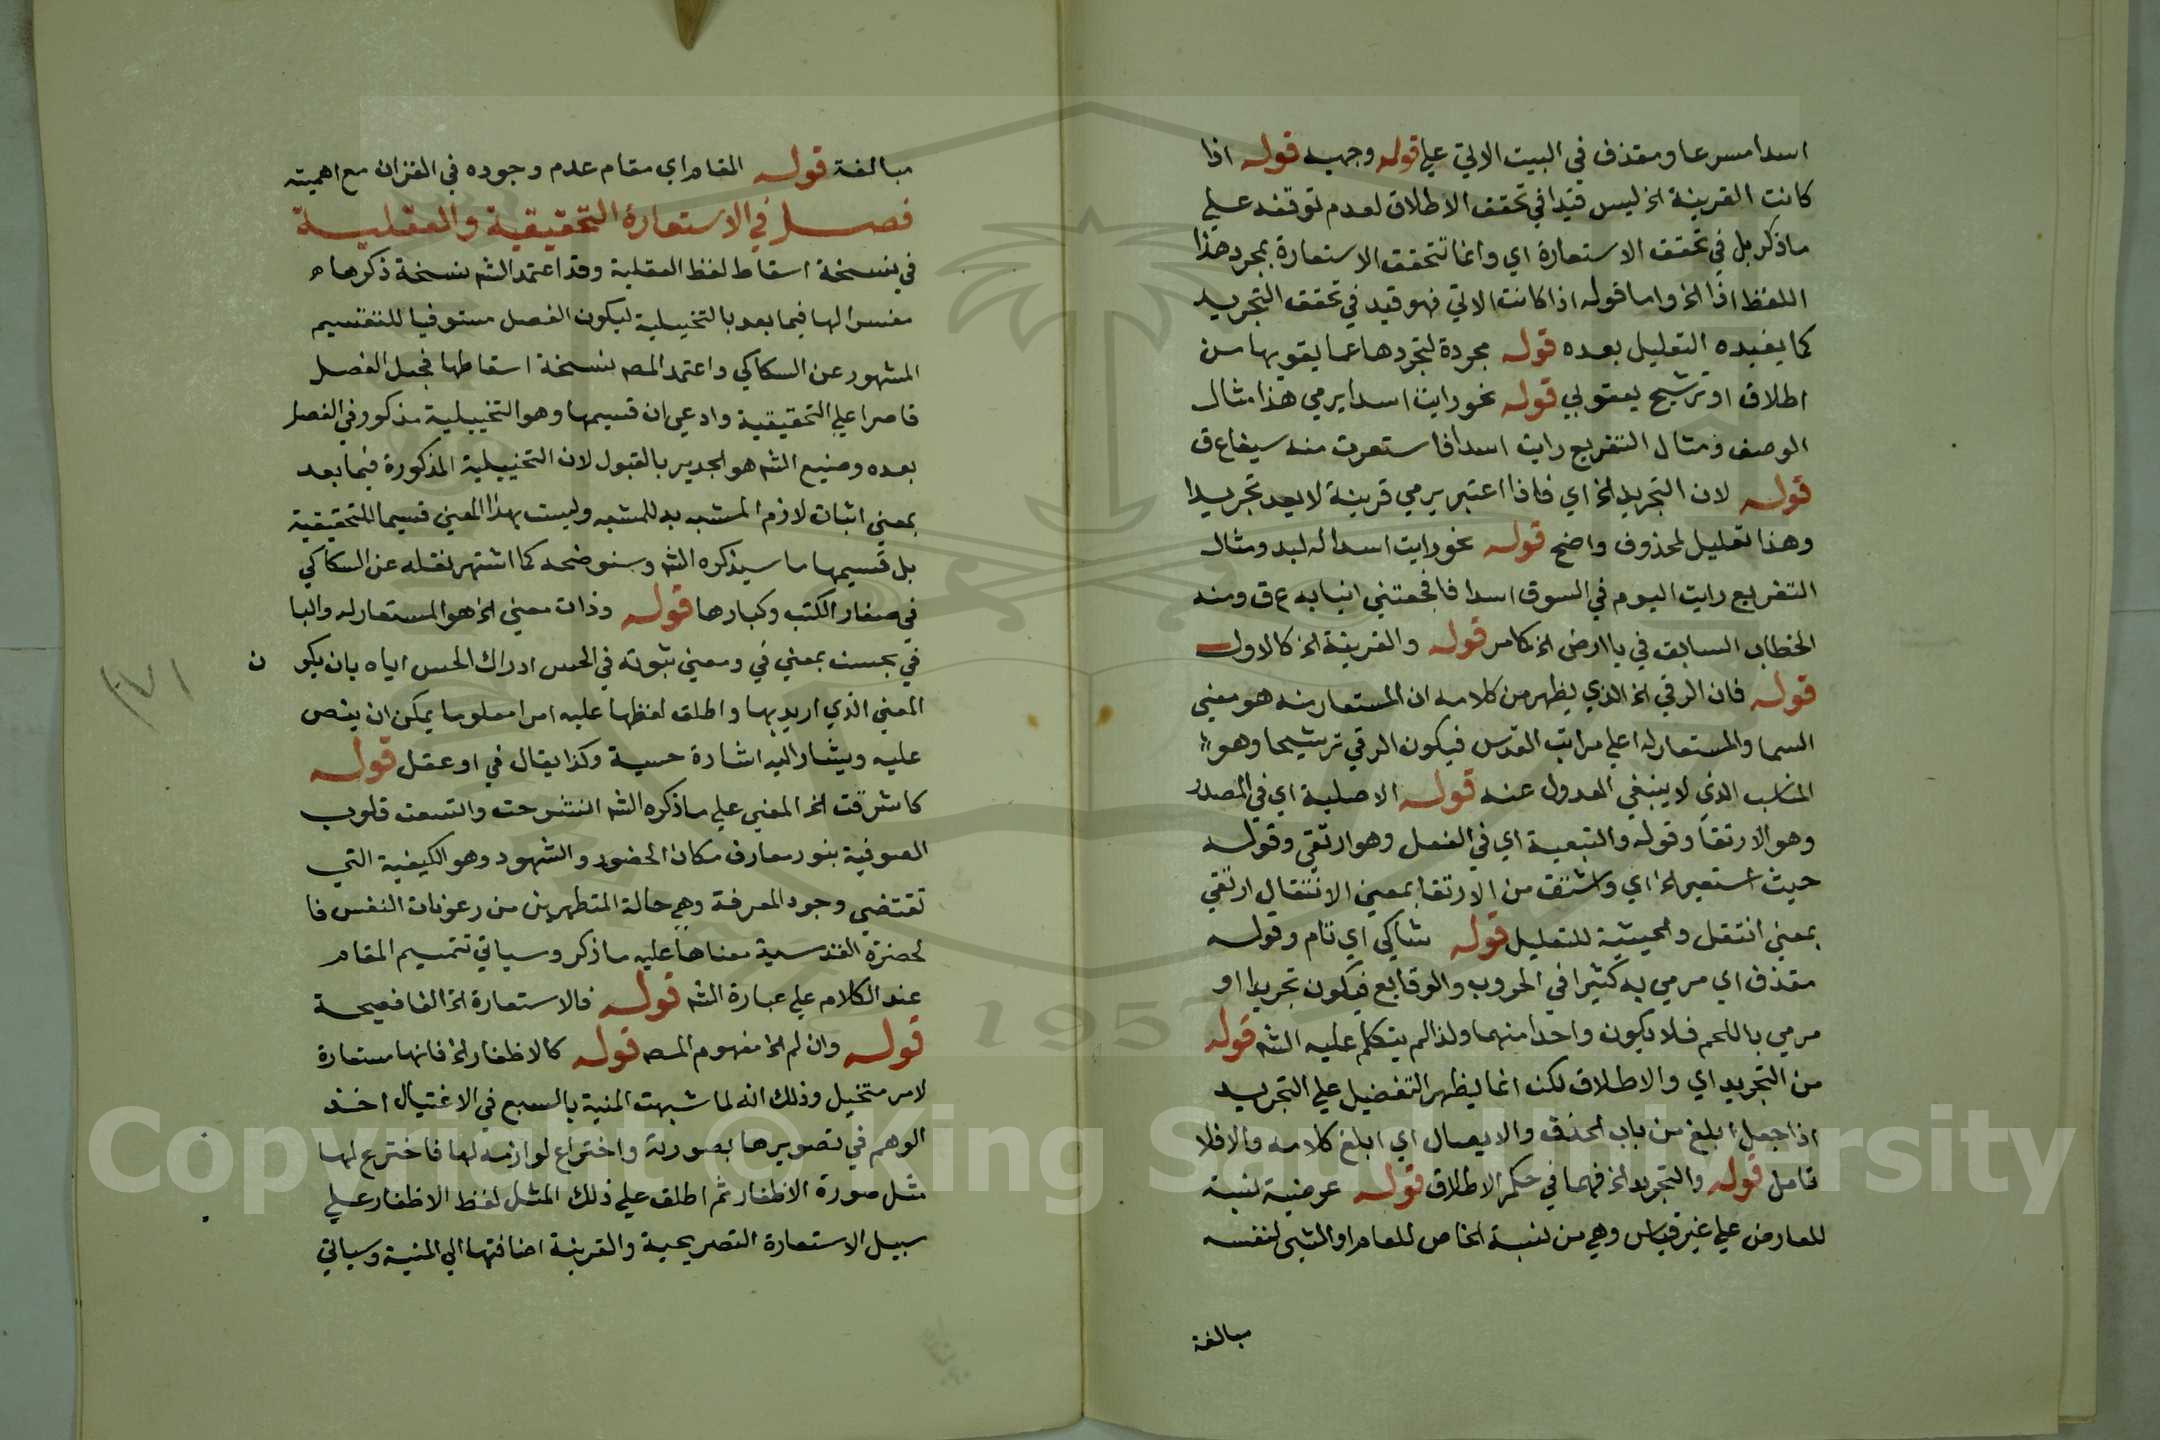 اسدا مسرعا ومقذف في البيت الاتي علي قوله وجهيه قوله اذا
كانت القرينة الخ ليس قيدا في تحقق الاطلاق لعدم توقفه علي
ماذكر بل في تحقق الاستعارة اي وانما تتحقق الاستعارة بمجرد هذا
اللفظ اذا الخ واما قوله اذا كانت الاتي فهو قيد في تحقق التجريد
كما يفيده التعليل بعده قوله مجردة لتجردها عما يقويها من
اطلاق او ترشيح يعقوبي قوله نحو رايت اسدا يرمي هذا مثال
الوصف ومثال التفريع رايت اسدا فاستعرت منه سيفا ع ق
قوله لان التجريد الخ اي فاذا اعتبر يرمي قرينة لا يعد تجريدا
وهذا تعليل لمحذوف واضح قوله نحو رايت اسدا له لبد ومثال
التفريع رايت اليوم في السوق اسدا فافجعتني انيابه ع ق ومنه
الخطاب السابق في يا ارض الخ كامر قوله والقرينة الخ كالاول
قوله فان الرقي الخ الذي يظهر من كلامه ان المستعار منه هو معني
السما والمستعار له اعلي مراتب القدس فيكون الرقي ترشيحا وهو
المناسب الذي لا ينبغي العدول عنه قوله الاصلية اي في المصدر
وهو الارتقا وقوله والتبعية اي في الفعل وهو ارتقي وقوله
حيث استعير الخ اي واشتق من الارتقا بمعني الانتقال ارتقي
بمعني انتقل والحيثية للتعليل قوله شاكي اي تام وقوله
مقذف اي مرمي به كثيرا في الحروب والوقايع فيكون تجريدا او
مرمي باللحم فلا يكون واحدا منهما ولذا لم يتكلم عليه الشه قوله
من التجريد اي والاطلاق لكن انما يظهر التفضيل علي التجريد
اذا جعل ابلغ من باب الحذف والايصال اي ابلغ كلامه والافلا
تامل قوله والتجريد الخ فهما في حكم الاطلاق قوله عرضية نسبة
للعارض علي غير قياس وهي من نسبة الخاص للعام او الشي لنفسه
مبالغة
مبالغة قوله المقام اي مقام عدم وجوده في القران مع اهميته
فصل في الاستعارة التحقيقية والعقلية
في نسخة اسقاط لفظ العقلية وقد اعتمد الشه نسخة ذكرها
مفسرا لها فيما بعد بالتخييلية ليكون الفصل مستوفيا للتقسيم
المشهور عن السكاكي واعتمد المصه نسخة اسقاطها فجعل الفصل
قاصرا علي التحقيقية وادعي ان قسيمها وهو التخييلية مذكور في الفصل
بعده وصنيع الشه هو الجدير بالقبول لان التخييلية المذكورة فيما بعد
بمعني اثبات لازم المشبه به للمشبه وليست بهذا المعني قسيما للتحقيقية
بل قسيمها ما سيذكره الشه وسنوضحه كما اشتهر نقله عن السكاكي
في صغار الكتب وكبارها قوله وذات معني الخ هو المستعار له والبا
في بحس بمعني في ومعني ثبوته في الحس ادراك الحس اياه بان يكو ن
المعني الذي اريد بها واطلق لفظها عليه امرا معلوما يمكن ان ينص
عليه ويشار اليه اشارة حسية وكذا يقال في او عقل قوله
كاشرقت الخ المعني علي ماذكره الشه انشرحت واتسعت قلوب
الصوفية بنور معارف مكان الحضور والشهود وهو الكيفية التي
تقتضي وجود المعرفة وهي حالة المتطهرين من رعونات النفس فا
لحضرة القدسية معناها عليه ماذكر وسياتي تتميم المقام
عند الكلام علي عبارة الشه قوله فالاستعارة الخ الفا فصيحة
قوله وان لم الخ مفهوم المصه قوله كالاظفار الخ فانها مستعارة
لامر متخيل وذلك انه لما شبهت المنية بالسبع في الاغتيال اخذ
الوهم في تصويرها بصورته واختراع لوازمه لها فاخترع لها
مثل صورة الاظفار ثم اطلق علي ذلك المثل لفظ الاظفار علي
سبيل الاستعارة التصريحية والقرينة اضافتها الي المنية وسياتي
١٧١
Copyright © King Saud University
1957